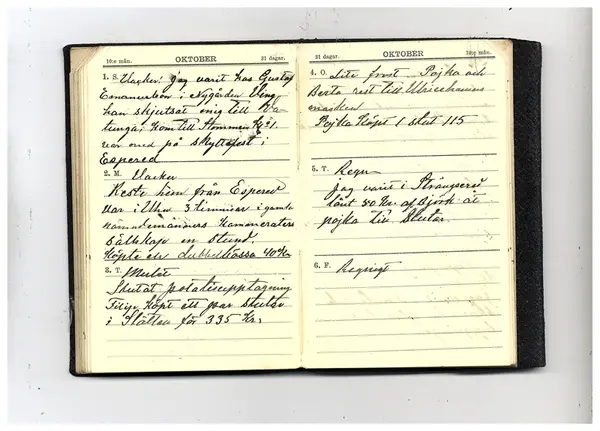 10:e mån. OKTOBER 31 dagar.
1. S. Vacker! jag varit hos Gustaf
Emanuelson i Nygården Ving
han skjutsat mig till
tunga; Kom till Kl 21.
var med på skyttefest i
Espered
2. M. Vacker
Reste hem från Espered
var i Uhn 3 timmar i gamla
Kammerater
Sällskap en stund.
Köpte en dubbelbössa 40 Kr
3. T. Mulet
Slutat potatisupptagning
Filip köpt ett par stutar
i Slätten för 335 Kr.
31 dagar. OKTOBER 10:e mån.
4. O. Lite frost Pojka och
Berta rest till Ulricehamns
marken
Pojka Köpt 1 stut 115
5. T. Regn
jag varit i Strängsered
lånt 80 Kr af Björk åt
pojka till Stutar.
6. F. Regnigt